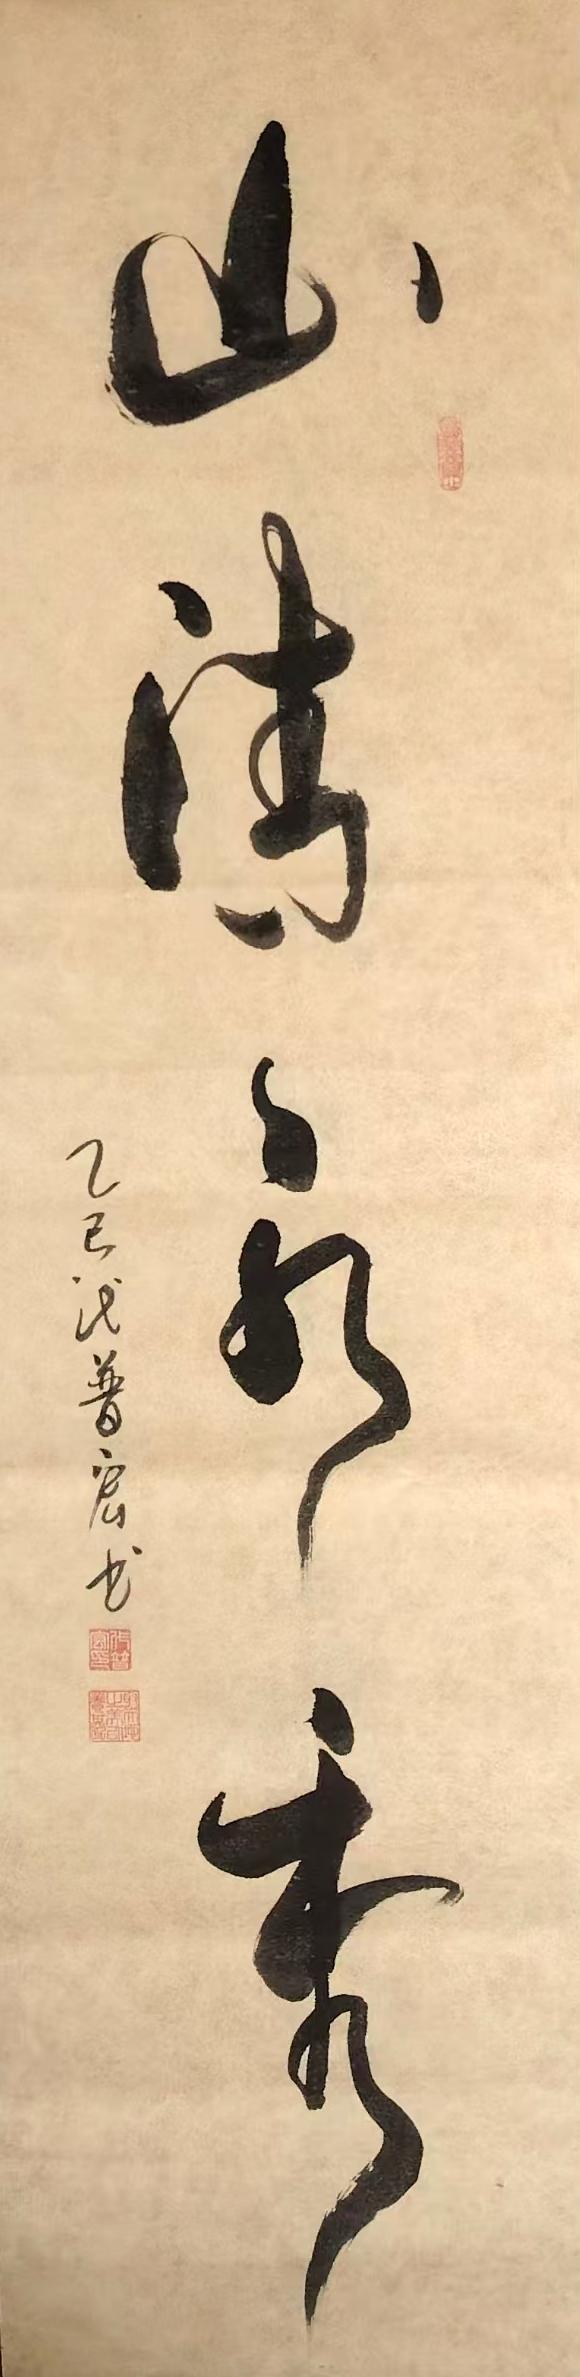 山清水秀
乙巳 普宏书